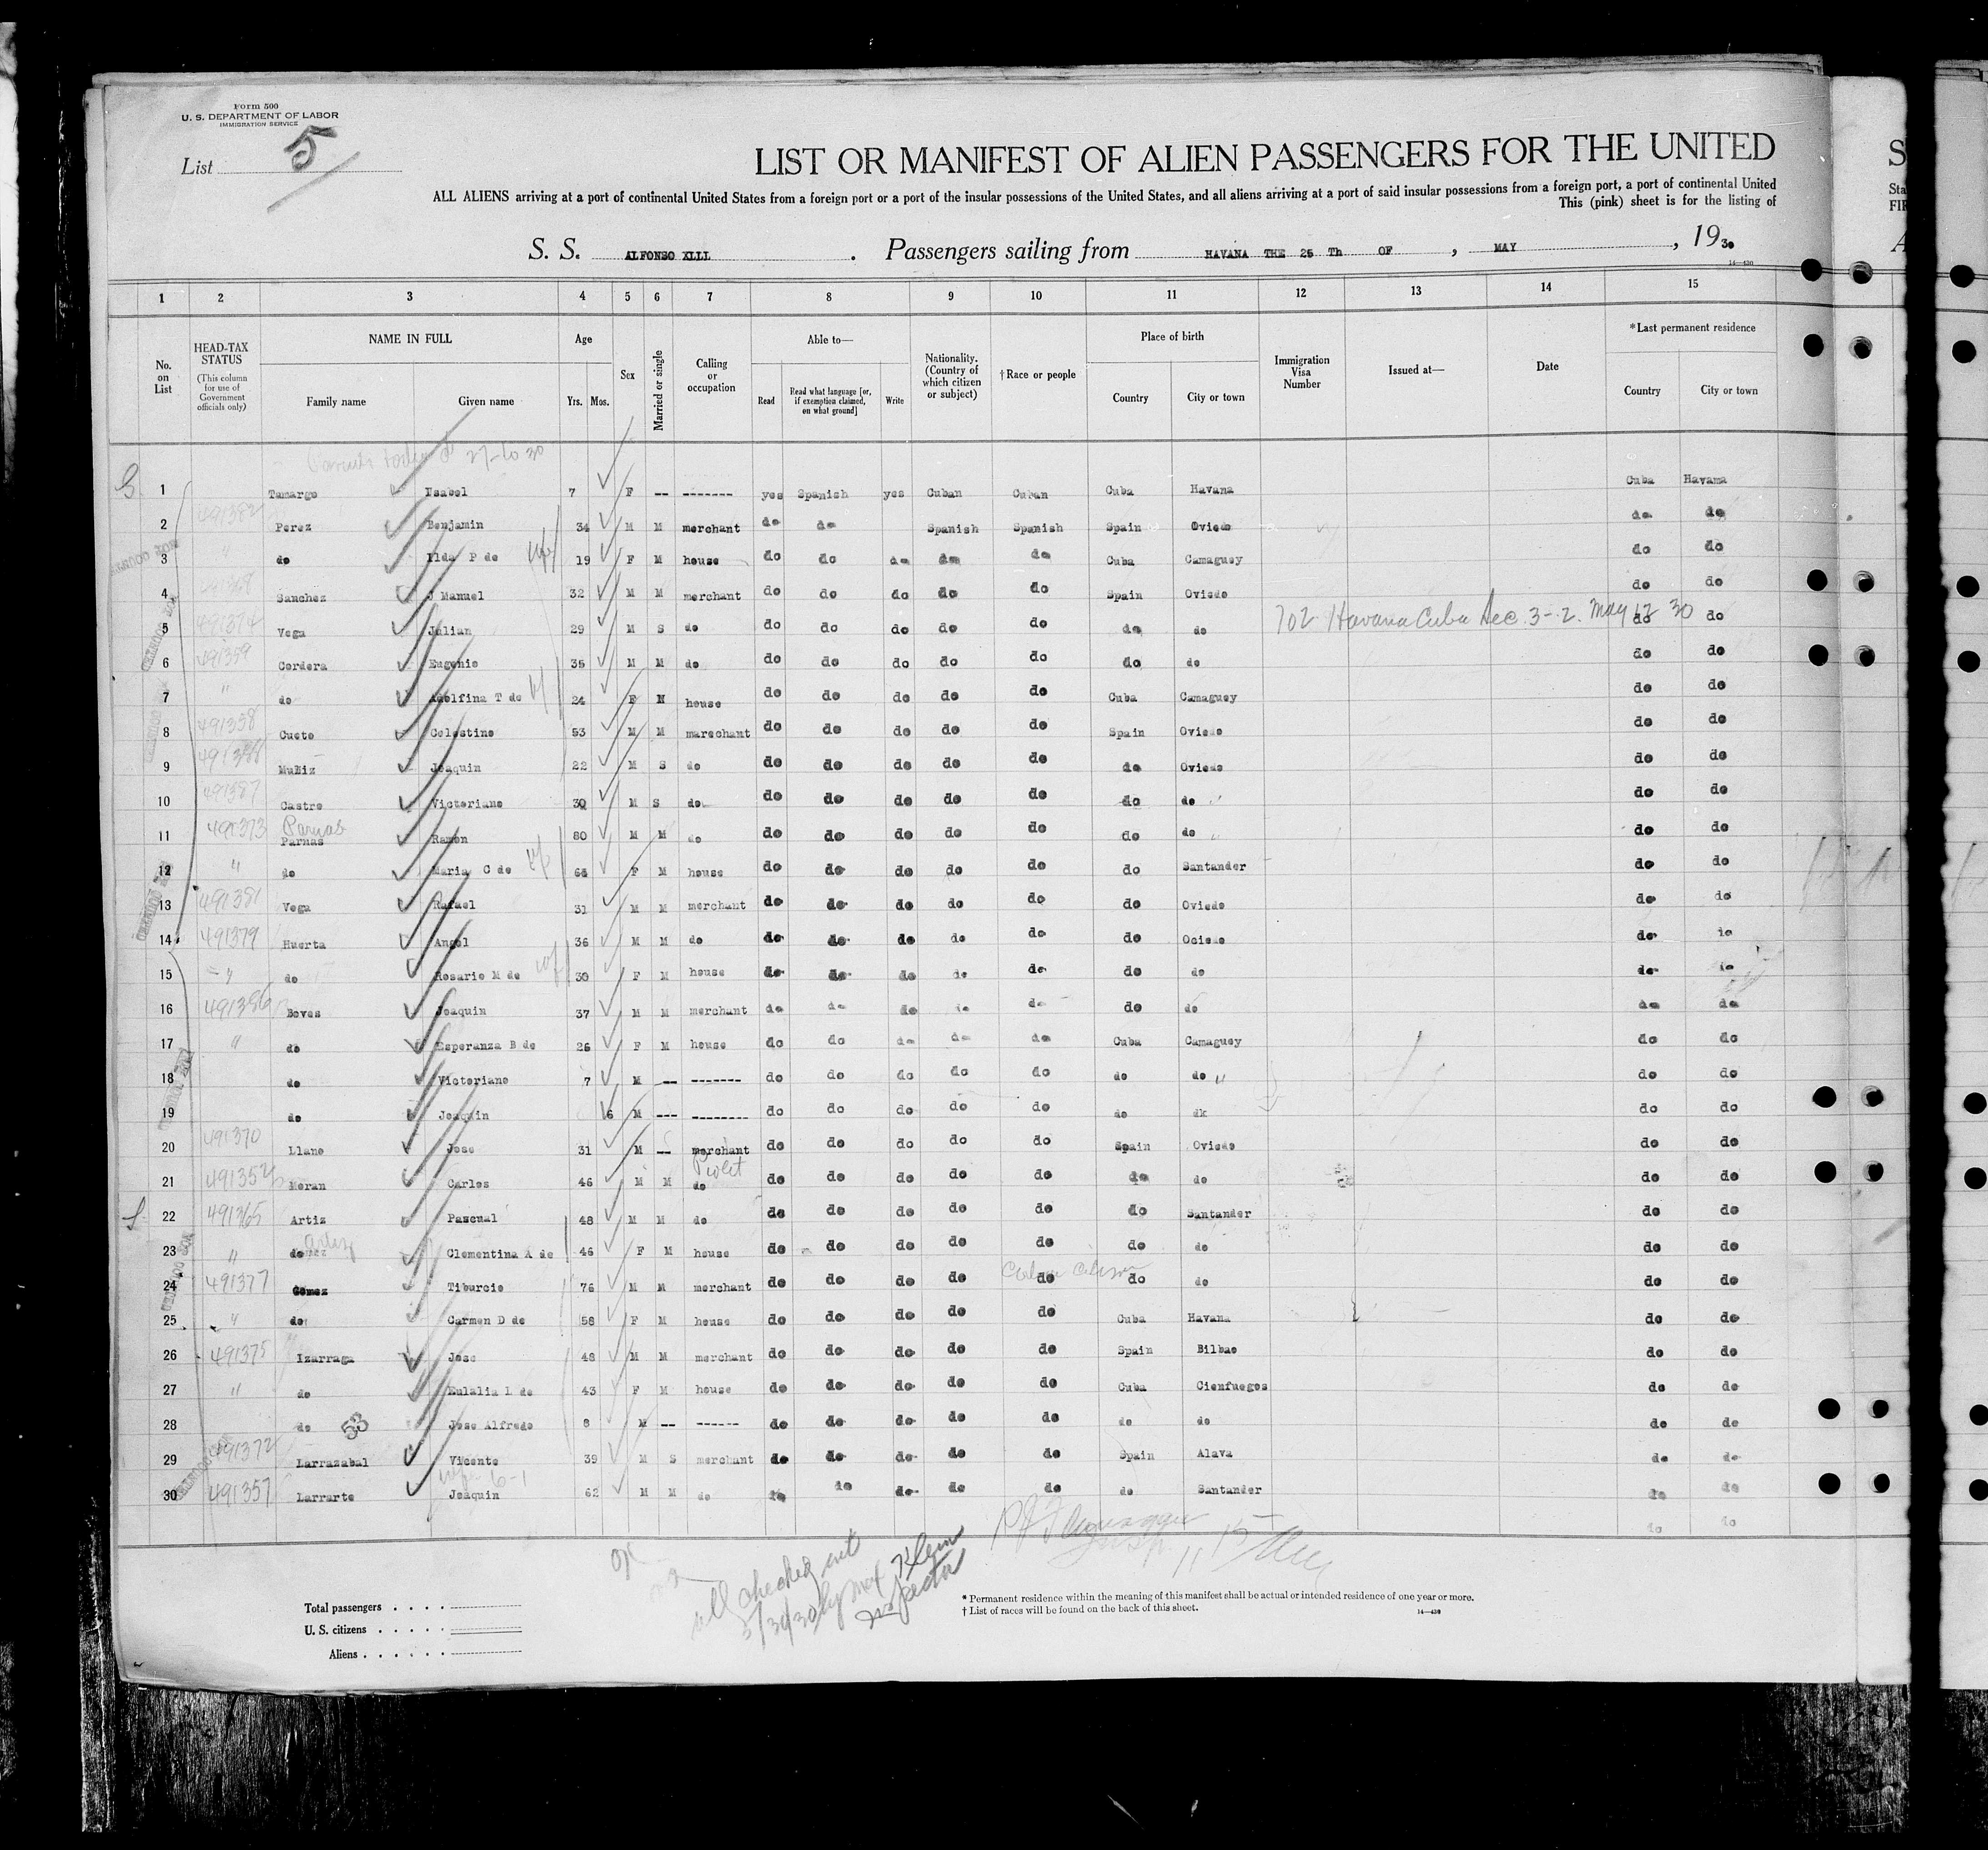 Form 500
U. S. DEPARTMENT OF LABOR
IMMIGRATION SERVICE
List 5
LIST OR MANIFEST OF ALIEN PASSENGERS FOR THE UNITED
ALL ALIENS arriving at a port of continental United States from a foreign port or a port of the insular possessions of the United States, and all aliens arriving at a port of said insular possessions from a foreign port, a port of continental United
This (pink) sheet is for the listing of
S. S. ALFONSO XLLL . Passengers sailing from HAVANA THE 25 Th OF , MAY , 1930
1 2 3 4 5 6 7 8 9 10 11 12 13 14 15
No. on List
HEAD-TAX STATUS (This column for use of Government officials only)
NAME IN FULL Family name Given name
Age Yrs. Mos.
Sex
Married or single
Calling or occupation
Able to— Read Read what language [or, if exemption claimed, on what ground] Write
Nationality. (Country of which citizen or subject)
†Race or people
Place of birth Country City or town
Immigration Visa Number
Issued at—
Date
*Last permanent residence Country City or town
27-10 30
1 Tamargo Ysabel 7 F -- ------- yes Spanish yes Cuban Cuban Cuba Havana Cuba Havana
2 491382 Perez Benjamin 34 M M merchant do do Spanish Spanish Spain Oviedo do do
3 " do Ilda P de 19 F M house do do do do do Cuba Camaguey do do
4 Sanchez J Manuel 32 M M merchant do do do do do Spain Oviedo do do
5 491374 Vega Julian 29 M S do do do do do do do do 702 Havana Cuba Sec. 3-2. May 12 30 do do
6 491359 Cordera Eugenio 35 M M do do do do do do do do do do
7 " do Adolfina T de 24 F M house do do do do do Cuba Camaguey do do
8 491358 Cueto Celestino 53 M M marechant do do do do do Spain Oviedo do do
9 Muñiz Joaquin 22 M S do do do do do do do Oviedo do do
10 491387 Castro Victoriano 30 M S do do do do do do do do do do
11 491373 Parnas Parmas Ramon 80 M M do do do do do do do do do do
12 " do Maria C de F M house do do do do do do Santander do do
13 491381 Vega Rafael 31 M M merchant do do do do do do Oviedo do do
14 491379 Huerta Angel 36 M M do do do do do do do Ociedo do do
15 " do Rosario M de 30 F M house do do do do do do do do do
16 491386 Boves Joaquin 37 M M merchant do do do do do do do do do
17 " do Esperanza B de 26 F M house do do do do do Cuba Camaguey do do
18 do Victoriano 7 M -- ------- do do do do do do do do do
19 do Joaquin 6 M --- -------- do do do do do do dk do do
20 491370 Llano Jose 31 M -- merchant do do do do do Spain Oviedo do do
21 491352 Moran Carlos 46 M M do do do do do do do do do do
22 491365 Artiz Pascual 48 M M do do do do do do do Santander do do
23 " do Clementina A de 46 F M house do do do do do do do do do
24 491377 Gomez Tiburcio 76 M M merchant do do do do do do do do do
25 " do Carmen D de 58 F M house do do do do do Cuba Havana do do
26 491375 Izarraga Jose 48 M M merchant do do do do do Spain Bilbao do do
27 " do Eulalia L de 43 F M house do do do do do Cuba Cienfuegos do do
28 do 53 Jose Alfredo 8 M -- ------ do do do do do do do do do
29 491372 Larrazabal Vicente 39 M S merchant do do do do do Spain Alava do do
30 491357 Larrarte Joaquin 62 M M do do do do do do do Santander do do
do do
OK
all checked out
5/30/30 by Max Klein
Inspector
Total passengers . . . .
U. S. citizens . . . . .
Aliens . . . . . .
* Permanent residence within the meaning of this manifest shall be actual or intended residence of one year or more.
† List of races will be found on the back of this sheet.
14—430